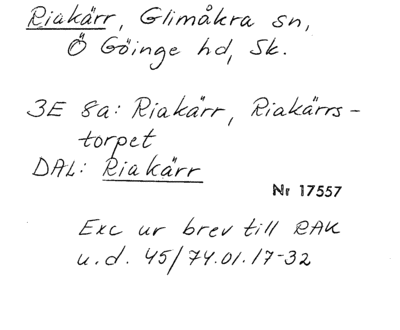 Riakärr, Glimåkra sn,
Ö Göinge hd, Sk.
3E 8a: Riakärr, Riakärrs-
torpet
DAL: Riakärr
Nr 17557
Exc ur brev till RAK
u.d. 45/74.01.17-32